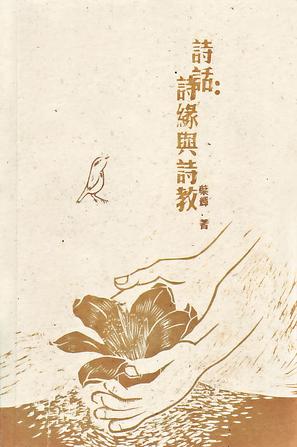 詩話：
詩緣與詩教
葉輝·著